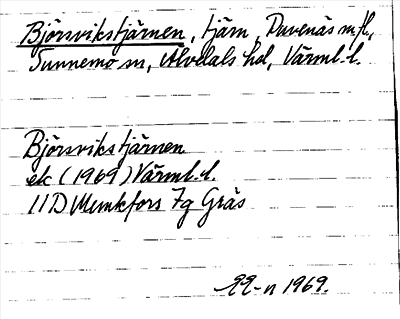 Björsvikstjärnen, tjärn, Duvenäs m.fl.,
Sunnemo sn, Älvdals hd, Värml. l.
Björsvikstjärnen
ek (1969) Värml. l.
11D Munkfors 7g Gräs
EE-n 1969.